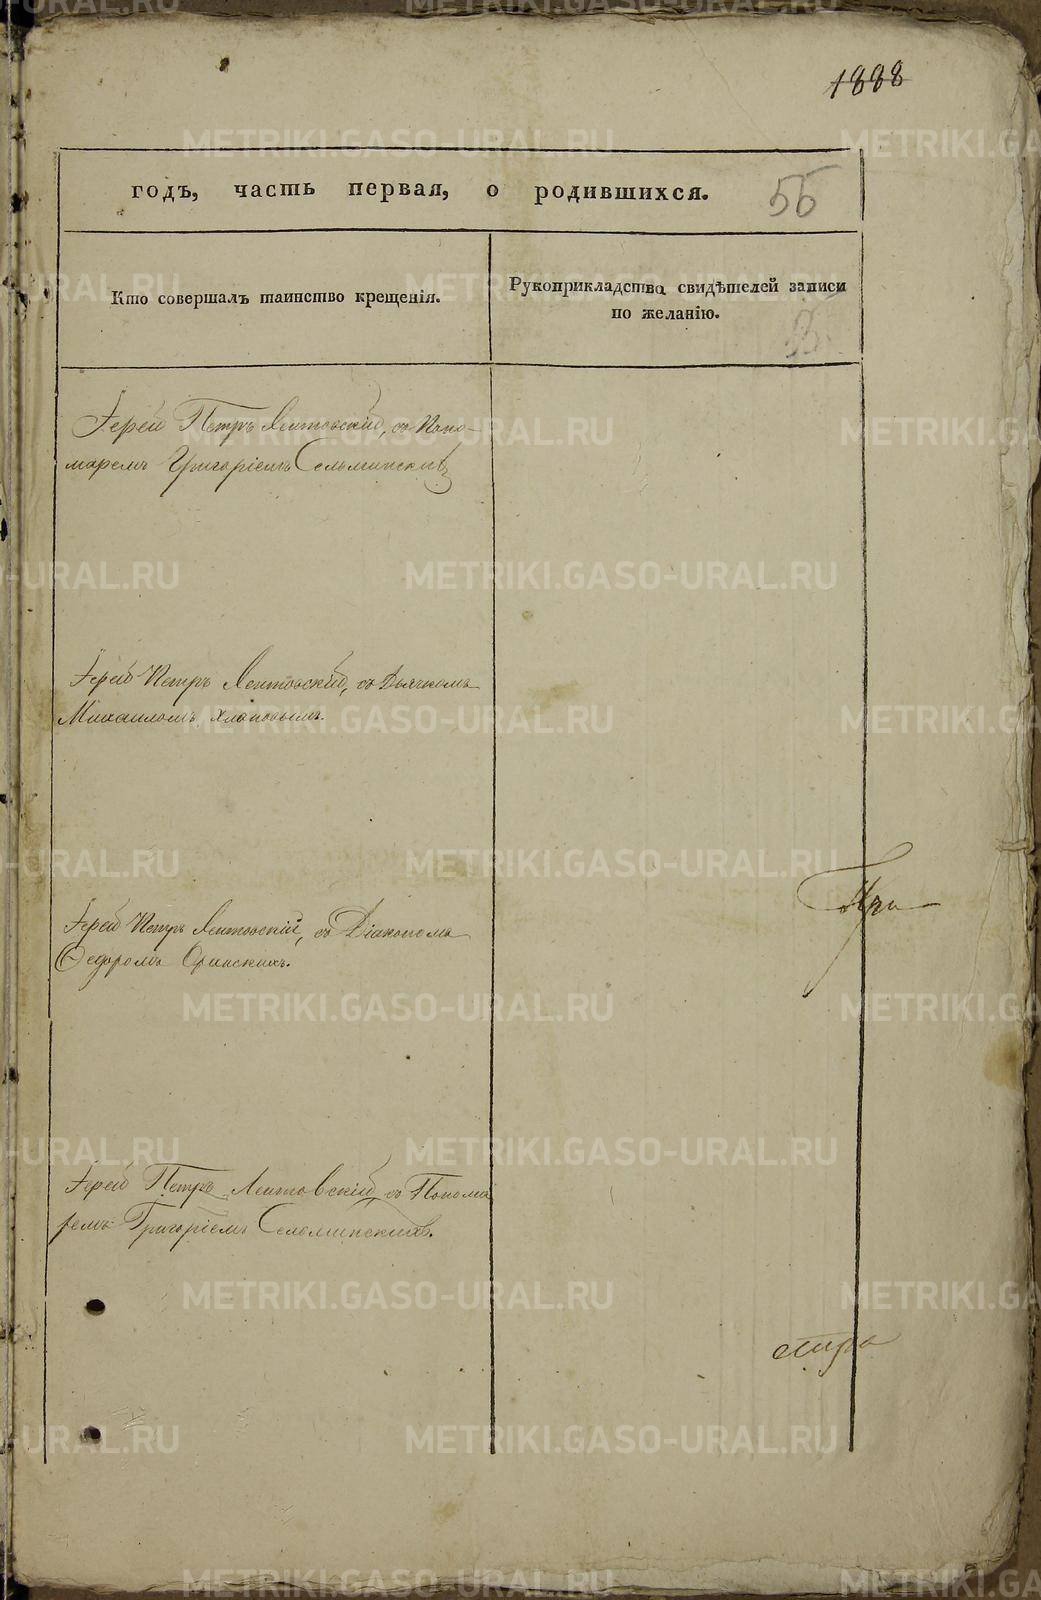 1888
годъ, часть первая, о родившихся.
55
Кто совершалъ таинство крещенія.
Рукоприкладства свидѣтелей записи
по желанію.
Іерей Петръ Лентовскій, съ Поно-
маремъ Григоріемъ
Іерей Петръ Лентовскій, съ Дьячкомъ
Михаиломъ Хлоповымъ.
Іерей Петръ Лентовскій, съ Діакономъ
Ѳедоромъ
Іерей Петръ Лентовскій, съ Понома
ремъ Григоріемъ
METRIKI.GASO-URAL.RU